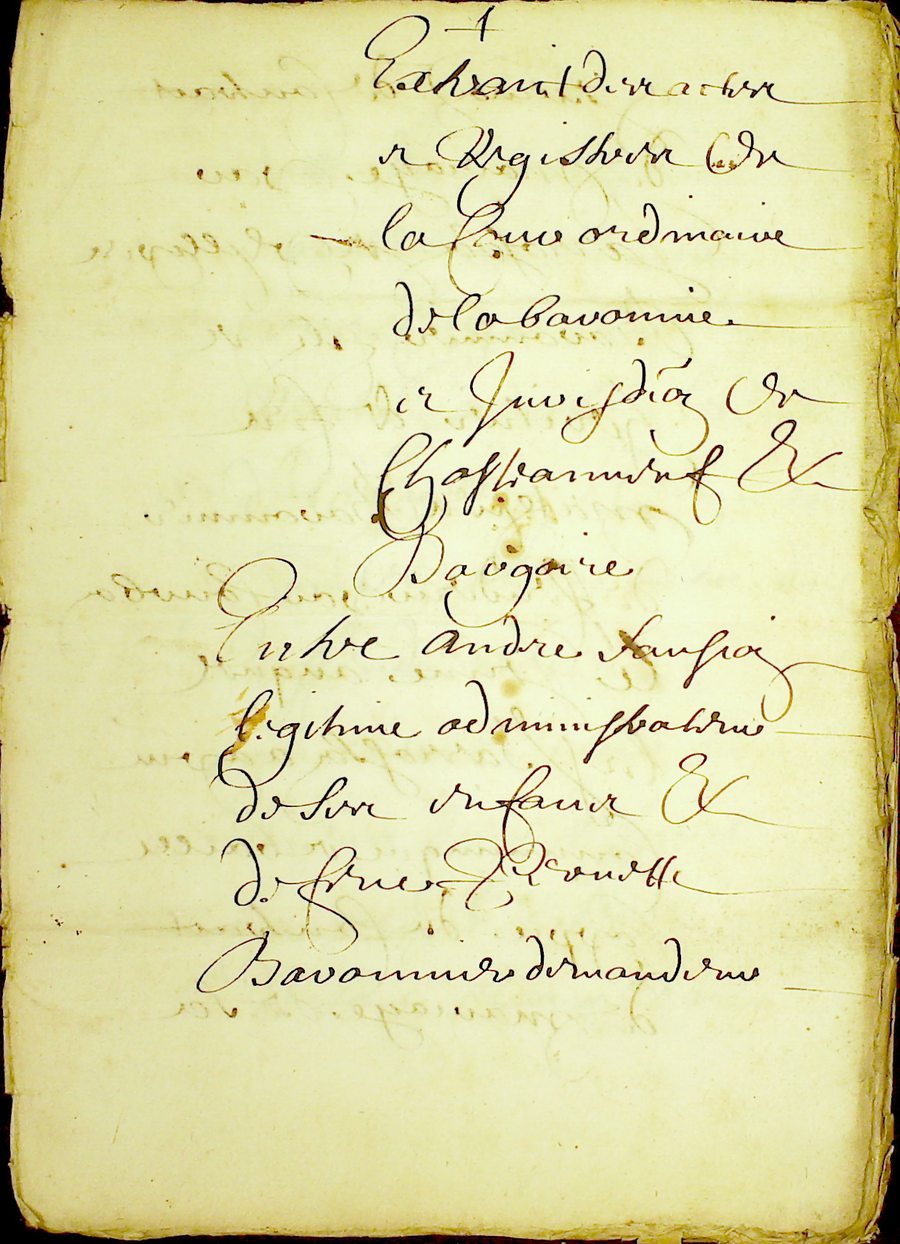 Extraict des actes
et Registres de
la Cour ordinaire
de la baronnie
et Jurisdiõn de
Chasteauneuf &
Entre andre
legitime administrateur
de ses enfans &
de feue
Baronnier demandeur